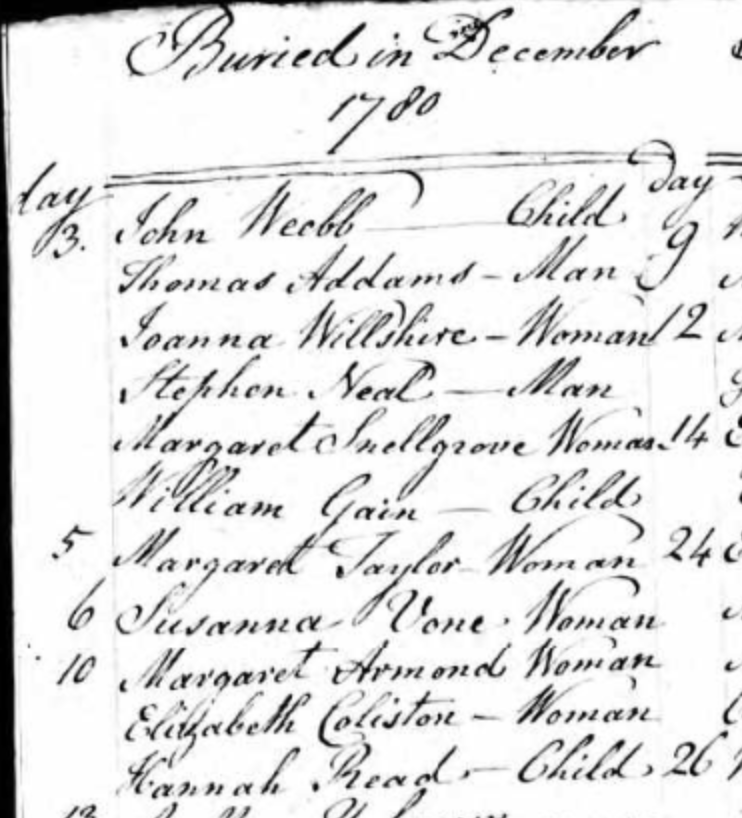 Buried in December
1780
day
day
3. John Weobb Child
9
Thomas Addams - Man
Joanna Willshire - Woman
12
Stephen Neal - Man
Margaret Snellgrove Woman
14
William Gain - Child
5 Margaret Taylor Woman
24
6 Susanna Vone Woman
10 Margaret Armond Woman
Elizabeth Coliston - Woman
Hannah Read - Child
26